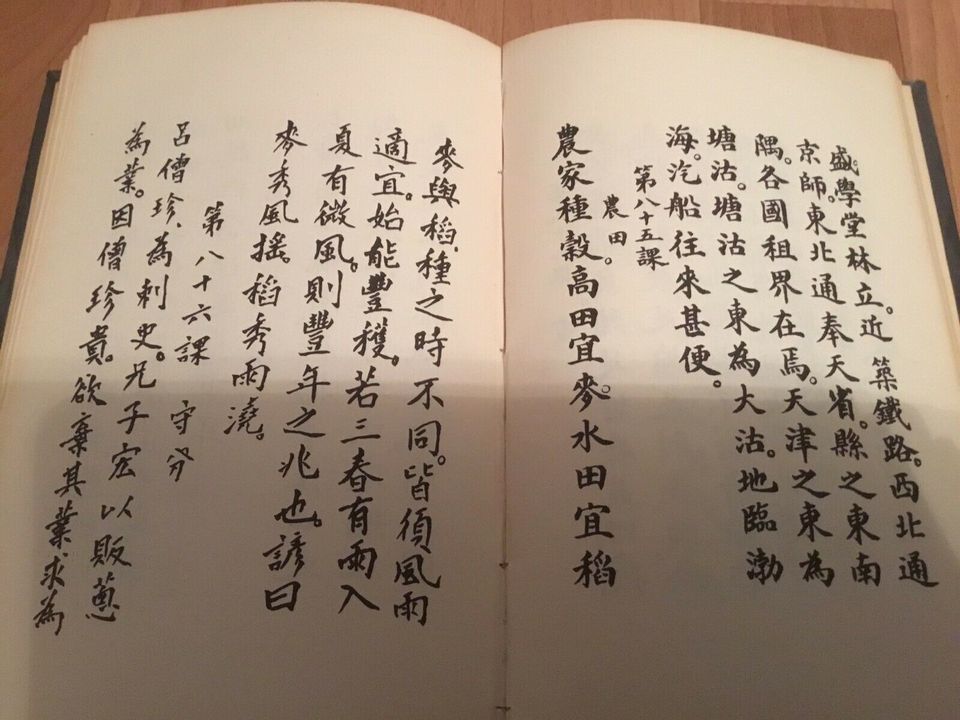 盛學堂林立。近築鐵路。西北通
京師。東北通奉天省。縣之東南
隅。各國租界在焉。天津之東為
塘沽。塘沽之東為大沽。地臨渤
海。汽船往來甚便。
第八十五課
農田。
農家種穀高田宜麥。水田宜稻
麥與稻、種之時不同。皆須風雨
適宜。始能豐穫。若三春有雨入
夏有微風。則豐年之兆也。諺曰
麥秀風搖。稻秀雨澆。
第八十六課 守分
呂僧珍、為刺史。兄子宏以販蔥
為業。因僧珍貴。欲棄其業求為